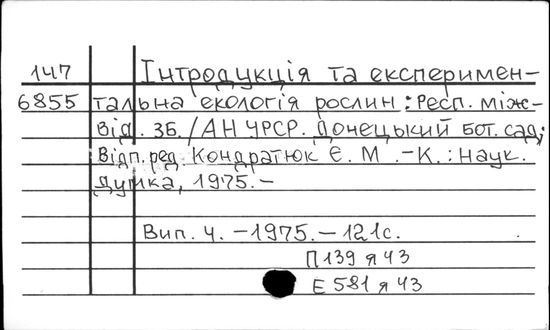 147 Інтродукція та експеримен-
6855 тальна екологія рослин: Респ. між-
від. зб. / АН УРСР. Донецький бот. сад;
Відп. ред. Кондратюк Є. М. -К.: Наук.
думка, 1975.-
Вип. 4. -1975.- 121с.
П139я43
Е581я43